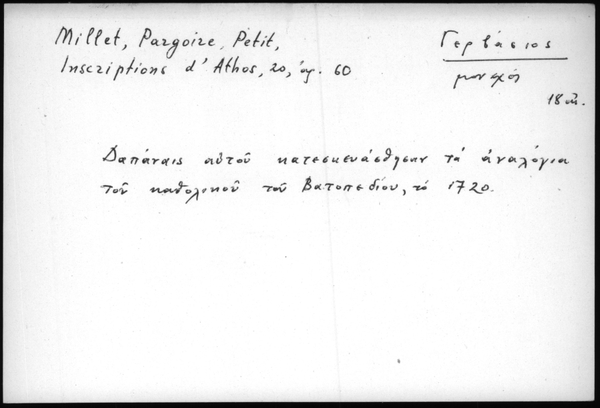 Millet, Pargoire, Petit,
Inscriptions d'Athos, 20, ἀρ. 60
Γερβάσιος
μοναχός
18 αἰ.
Δαπάναις αὐτοῦ κατεσκευάσθησαν τὰ ἀναλόγια
τοῦ καθολικοῦ τοῦ Βατοπεδίου, τὸ 1720.